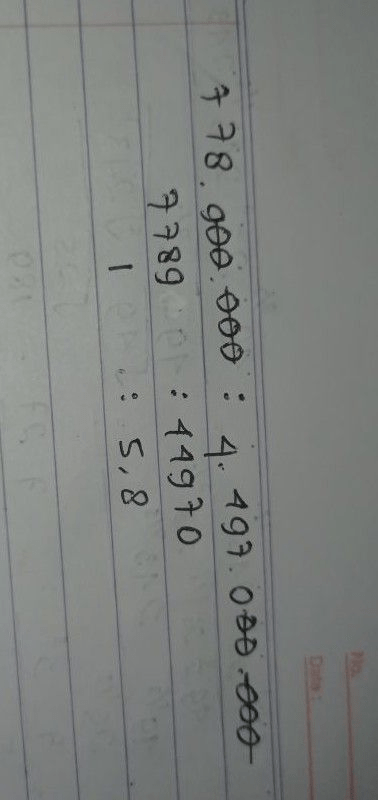 No.
Date :
778.900.000 : 4.497.000.000
7789 : 44970
1 : 5,8